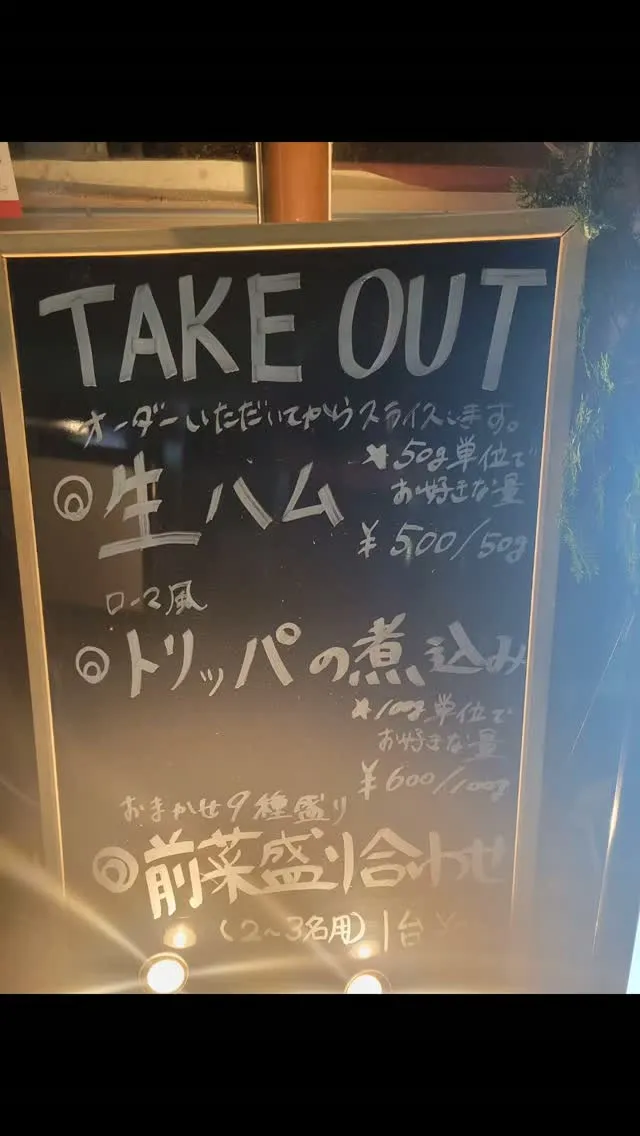 TAKE OUT
オーダーいただいてからスライスします。
◎生ハム
★50g単位で
お好きな量
¥500/50g
ローマ風
◎トリッパの煮込み
★100g単位で
お好きな量
¥600/100g
おまかせ9種盛り
◎前菜盛り合わせ
(2~3名用) 1台 ¥